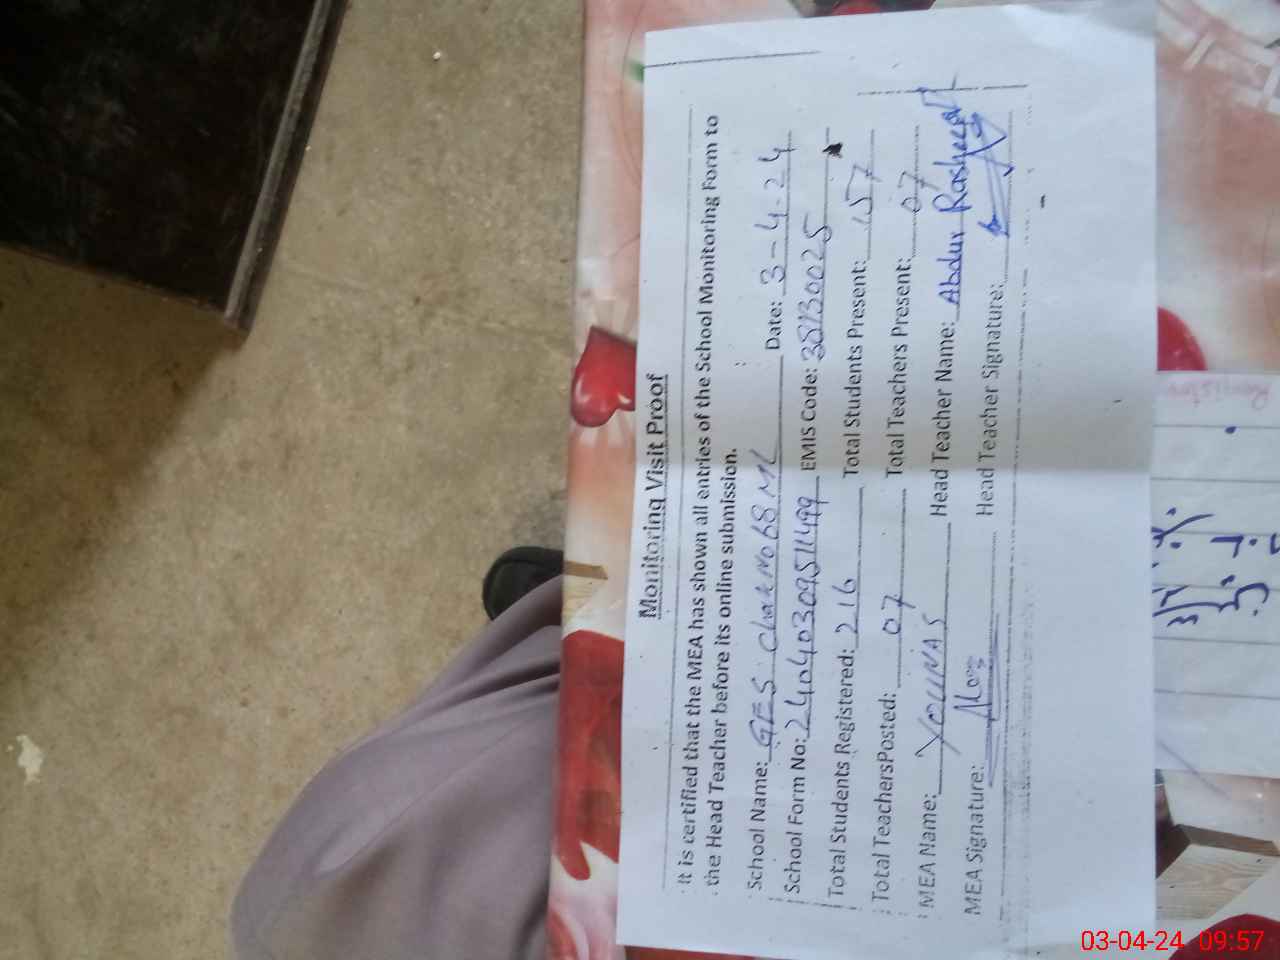 Monitoring Visit Proof
It is certified that the MEA has shown all entries of the School Monitoring Form to
the Head Teacher before its online submission.
School Name: GES Chak No 68 ML Date: 3-4-24
School Form No: 24040309511499 EMIS Code: 38130025
Total Students Registered: 216 Total Students Present: 157
Total TeachersPosted: 07 Total Teachers Present: 07
MEA Name: YOUNAS Head Teacher Name: Abdur Rasheed
MEA Signature: Head Teacher Signature:
Register
03-04-24 09:57